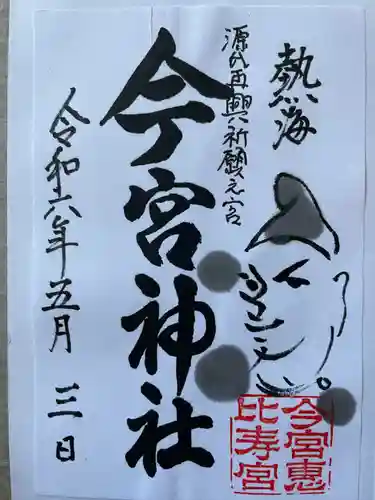 熱海
源氏再興祈願之宮
今宮神社
令和六年五月三日
今宮恵
比寿宮